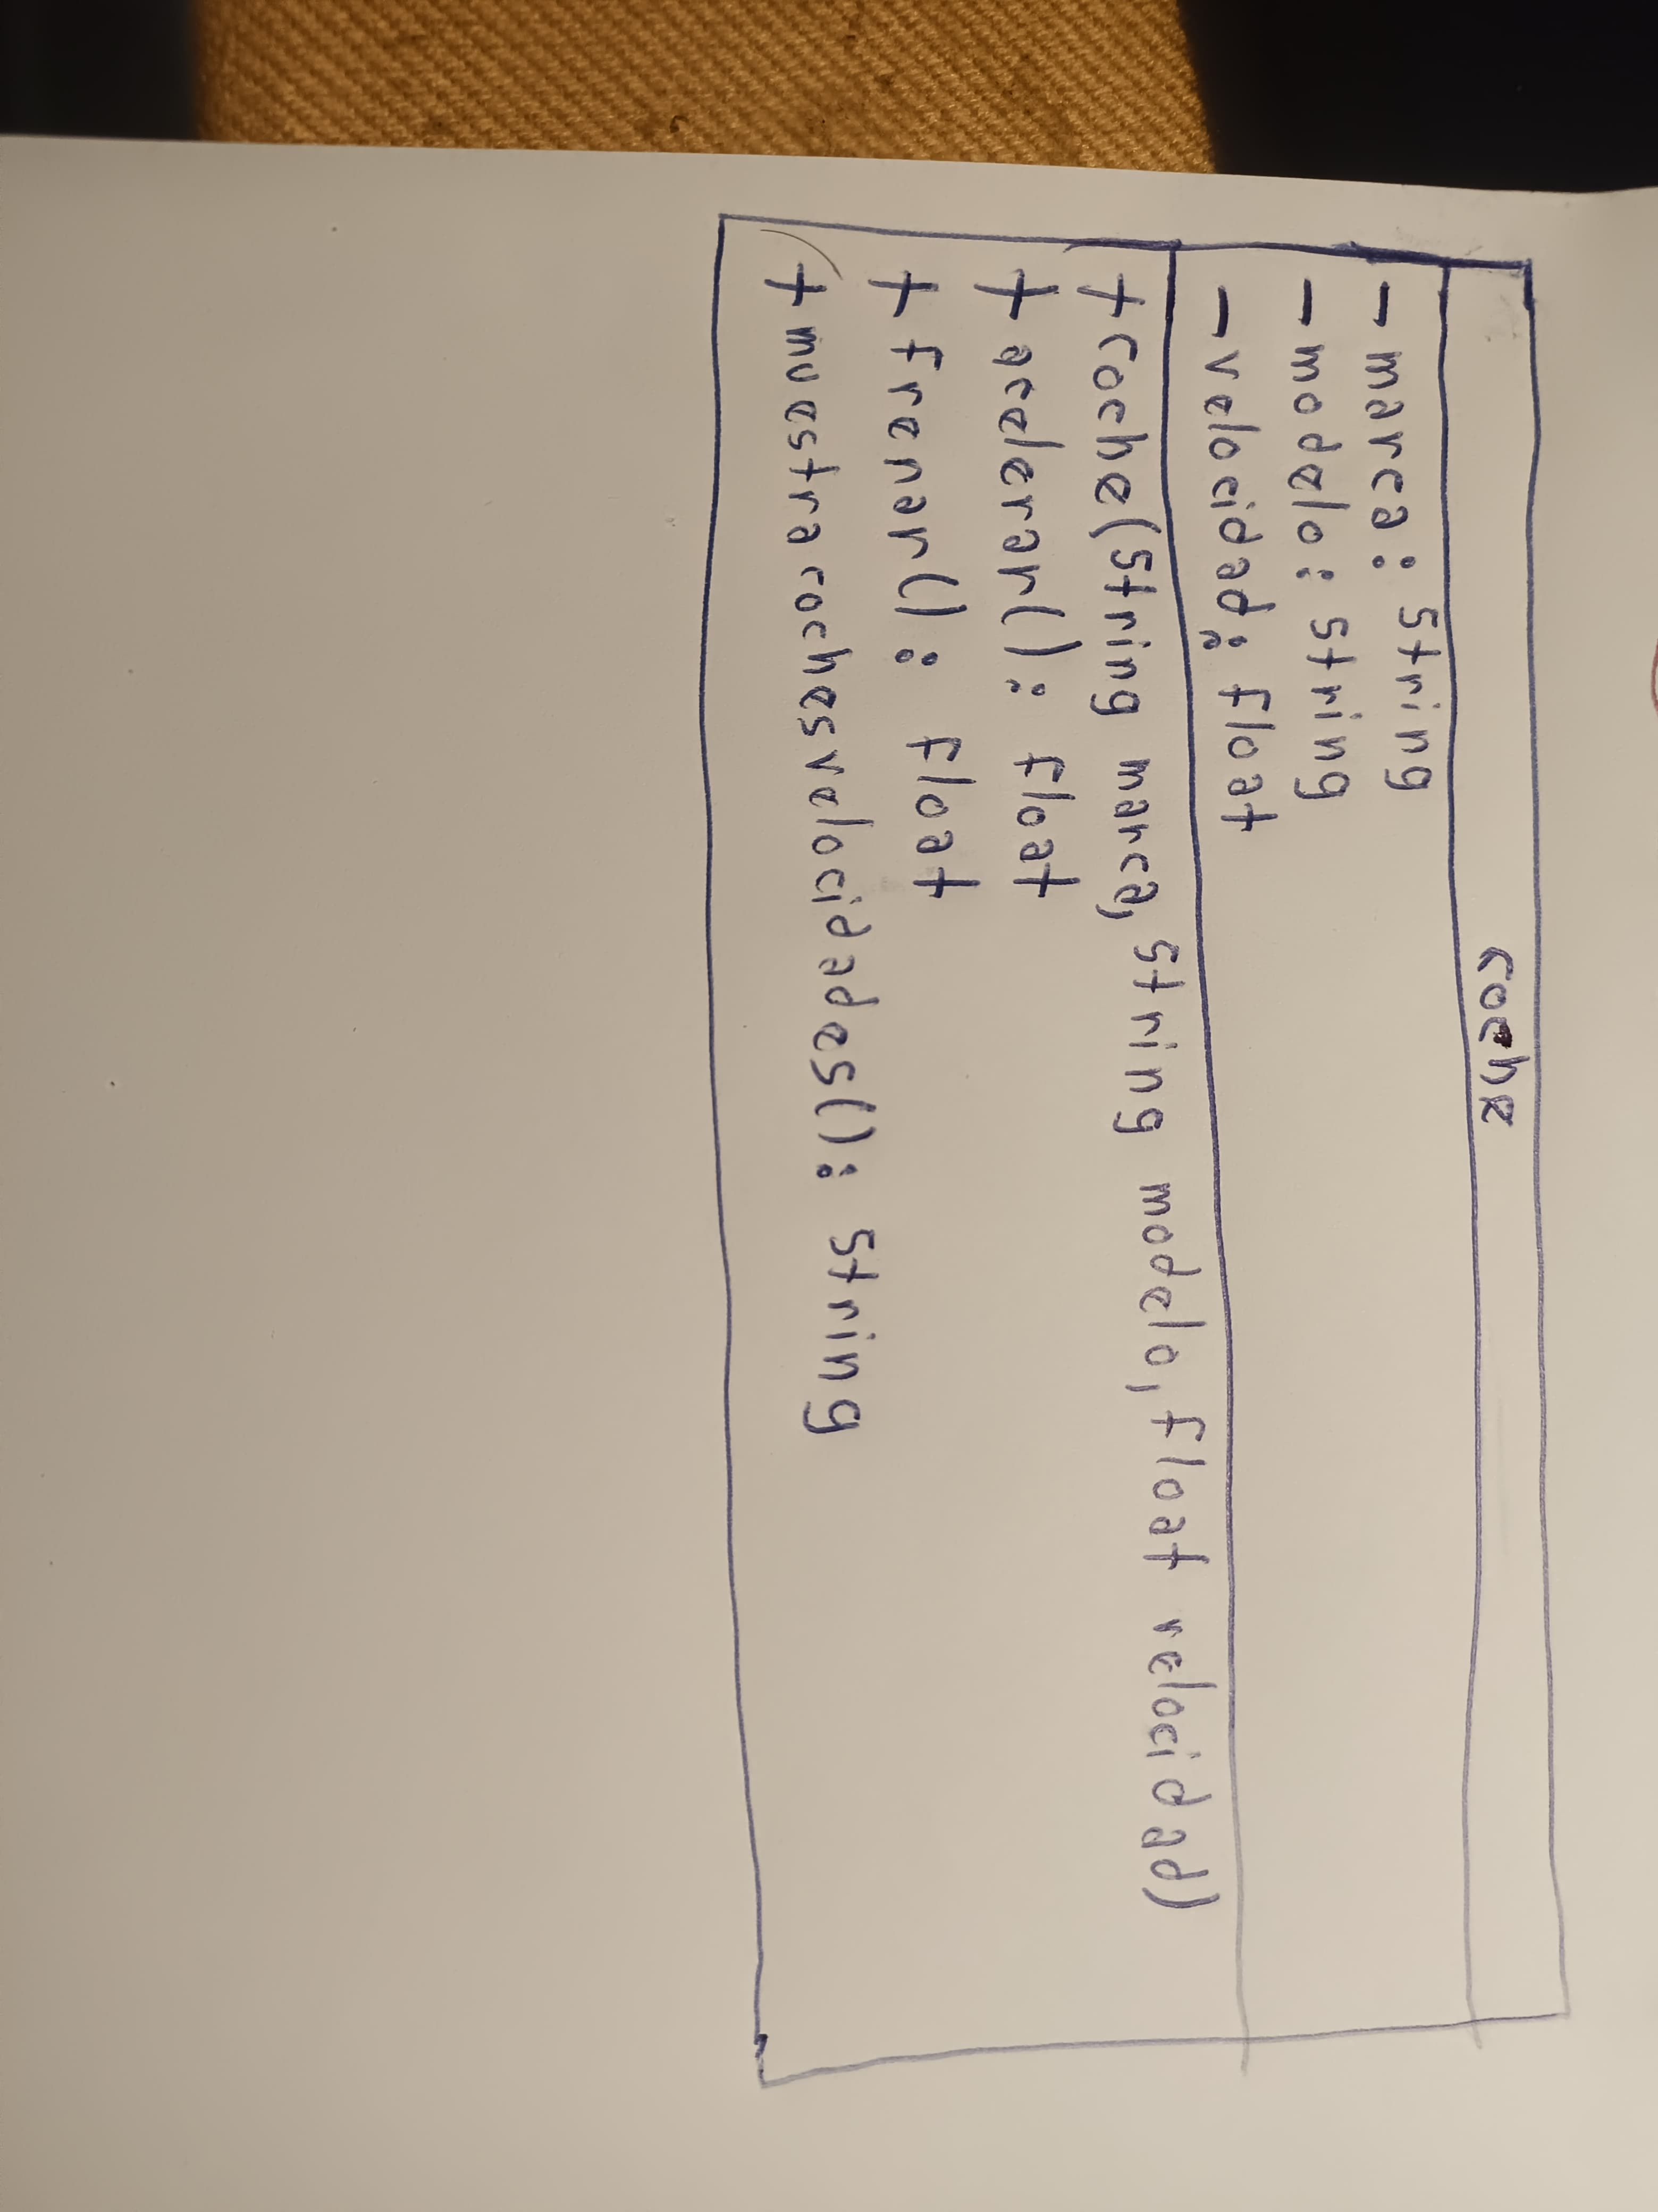 coche
- marca: string
- modelo: string
- velocidad: float
+ coche(string marca, string modelo, float velocidad)
+ acelerar(): float
+ frenar(): float
+ muestracochesvelocidades(): string